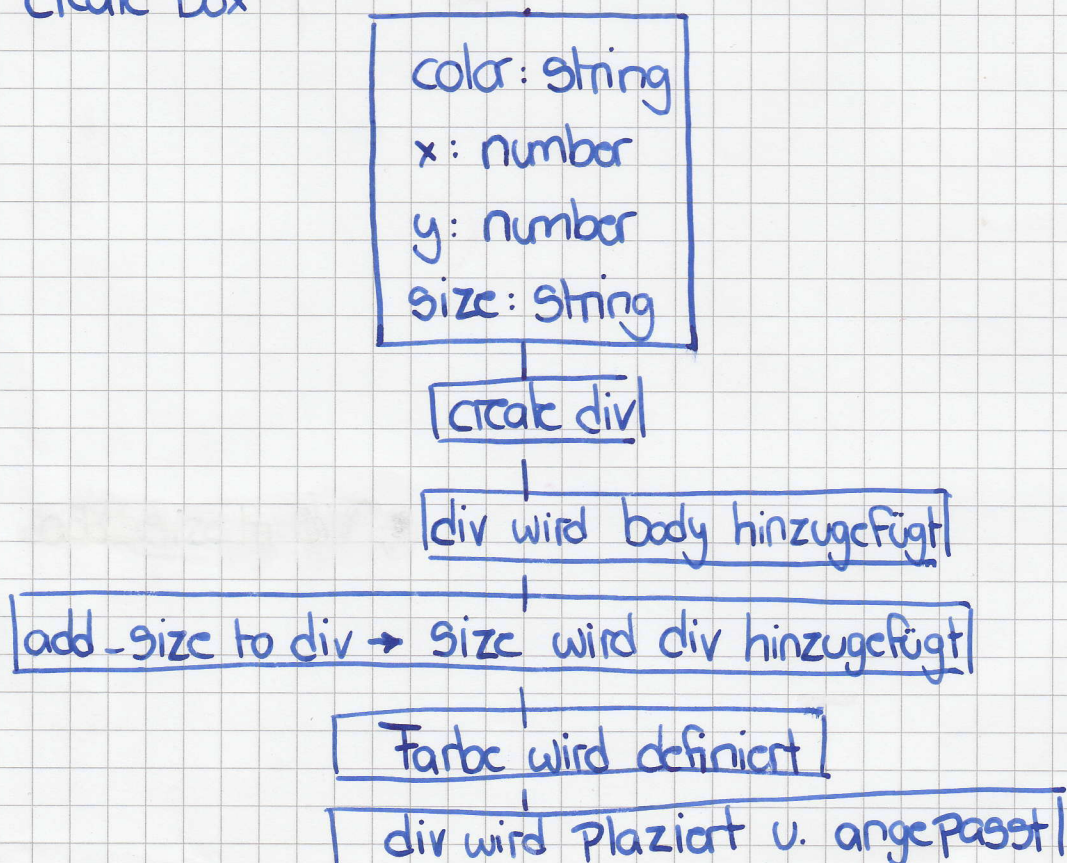 create Box
color: string
x: number
y: number
size: string
create div
div wird body hinzugefügt
add_size to div → size wird div hinzugefügt
Farbe wird definiert
div wird plaziert u. angepasst